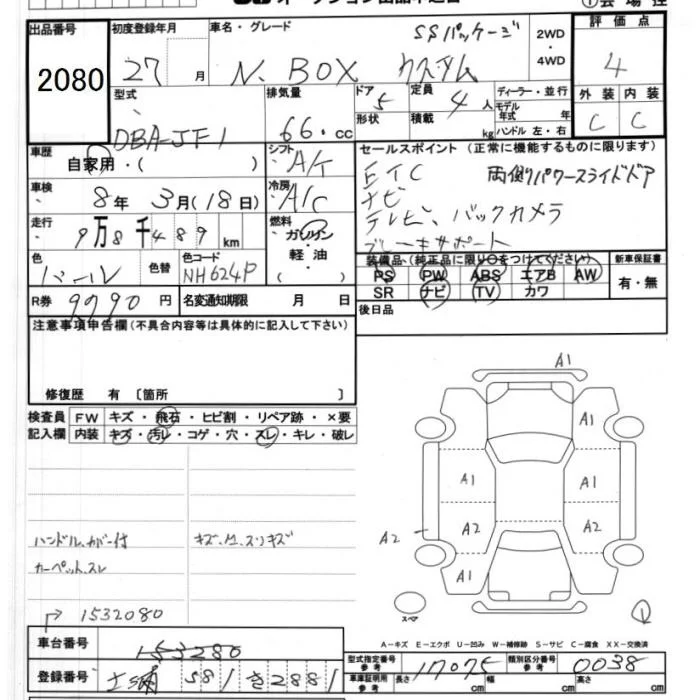 出品番号 初度登録年月 車名・グレード SSパッケージ 2WD ・ 4WD 評価点
2080 27 月 N.BOX カスタム 4
型式 排気量 ドア 5 定員 4 人 ディーラー・並行 外装 内装
DBA-JF1 66. cc 形状 積載 kg モデル年式 年 ハンドル 左・右 C C
車歴 自家用・( ) シフト A/T セールスポイント (正常に機能するものに限ります)
車検 8年 3月(18日) 冷房 A/C ETC 両側パワースライドドア
ナビ
走行 9万8千489 km 燃料 ガソリン ・ 軽油 ( ) テレビ、バックカメラ
ブレーキサポート
色 パール 色替 色コード NH624P 装備品 (純正品に限り○をつけてください) 新車保証書
PS PW ABS エアB AW 有・無
SR ナビ TV カワ
R券 9790 円 名変通知期限 月 日 後日品
注意事項申告欄(不具合内容等は具体的に記入して下さい)
修復歴 有 〔箇所 〕
検査員 FW キズ・飛石・ヒビ割・リペア跡・×要
記入欄 内装 キズ・汚レ・コゲ・穴・スレ・キレ・破レ
A1
A1
A1 A1
A2 A2
A2
A1
ハンドル、カバー付
カーペット、スレ
スペア
1532080
A-キズ E-エクボ U-凹み W-補修跡 S-サビ C-腐食 XX-交換済
車台番号 153280
型式指定番号 参考 17075 類別区分番号 参考 0038
登録番号 581 き2881
車庫証明用 参考 長さ cm 幅 cm 高さ cm